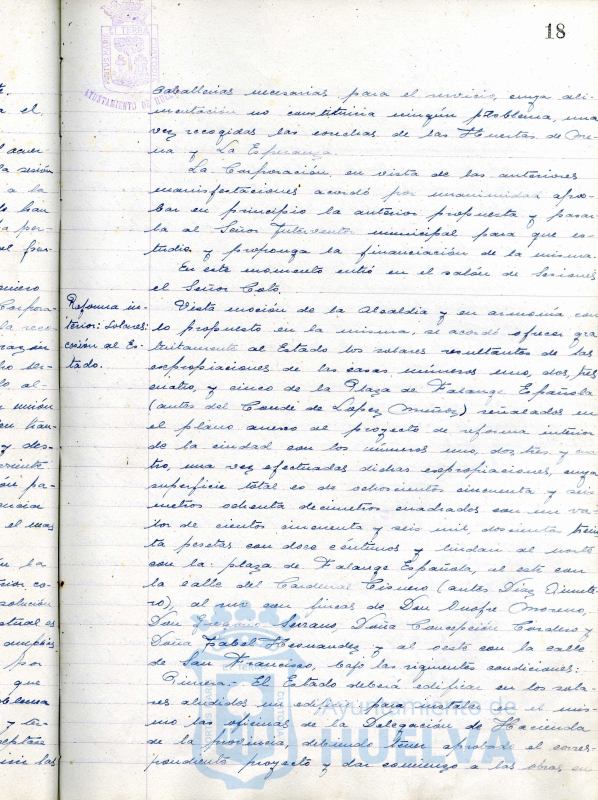 18
caballerias necesarias para el servicio, cuya ali-
mentación no constituiria ningún problema, una
vez recogidas las conchas de las Huertas de Me-
na y La Esperanza.
La Corporación, en vista de las anteriores
manifestaciones acordó por unanimidad apro-
bar en principio la anterior propuesta y pasar-
la al Señor Interventor municipal para que es-
tudie y proponga la financiación de la misma.
En este momento entró en el salón de Sesiones
el Señor Coto.
Reforma in-
terior: Solares:
cesión al Es-
tado.
Vista moción de la Alcaldia y en armonía con
lo propuesto en la misma, se acordó ofrecer gra
tuitamente al Estado los solares resultantes de las
expropiaciones de las casas números uno, dos, tres
cuatro, y cinco de la Plaza de Falange Española
(antes del Conde de López Muñoz) señalados en
el plano anexo al proyecto de reforma interior
de la ciudad con los números uno, dos, tres y cua
tro, una vez efectuadas dichas expropiaciones, cuya
superficie total es de ochocientos cincuenta y seis
metros ochenta decimetros cuadrados con un va-
lor de cientos cincuenta y seis mil, doscientas trein
ta pesetas con doce céntimos y lindan al norte
con la plaza de Falange Española, al este con
la calle del Cardenal Cisnero (antes Díaz Quinte-
ro), al sur con fincas de Don Onofre Moreno,
Don Gregorio Serrano, Doña Concepción Cordero y
Doña Isabel Hernandez y al oeste con la calle
de San Francisco, bajo las siguientes condiciones:
Primera- El Estado deberá edificar en los sola-
res aludidos un edificio para instalar en el mis-
mo las oficinas de la Delegación de Hacienda
de la provincia, debiendo tener aprobado el corres-
pondiente proyecto y dar comienzo a las obras en
Ayuntamiento de
HUELVA